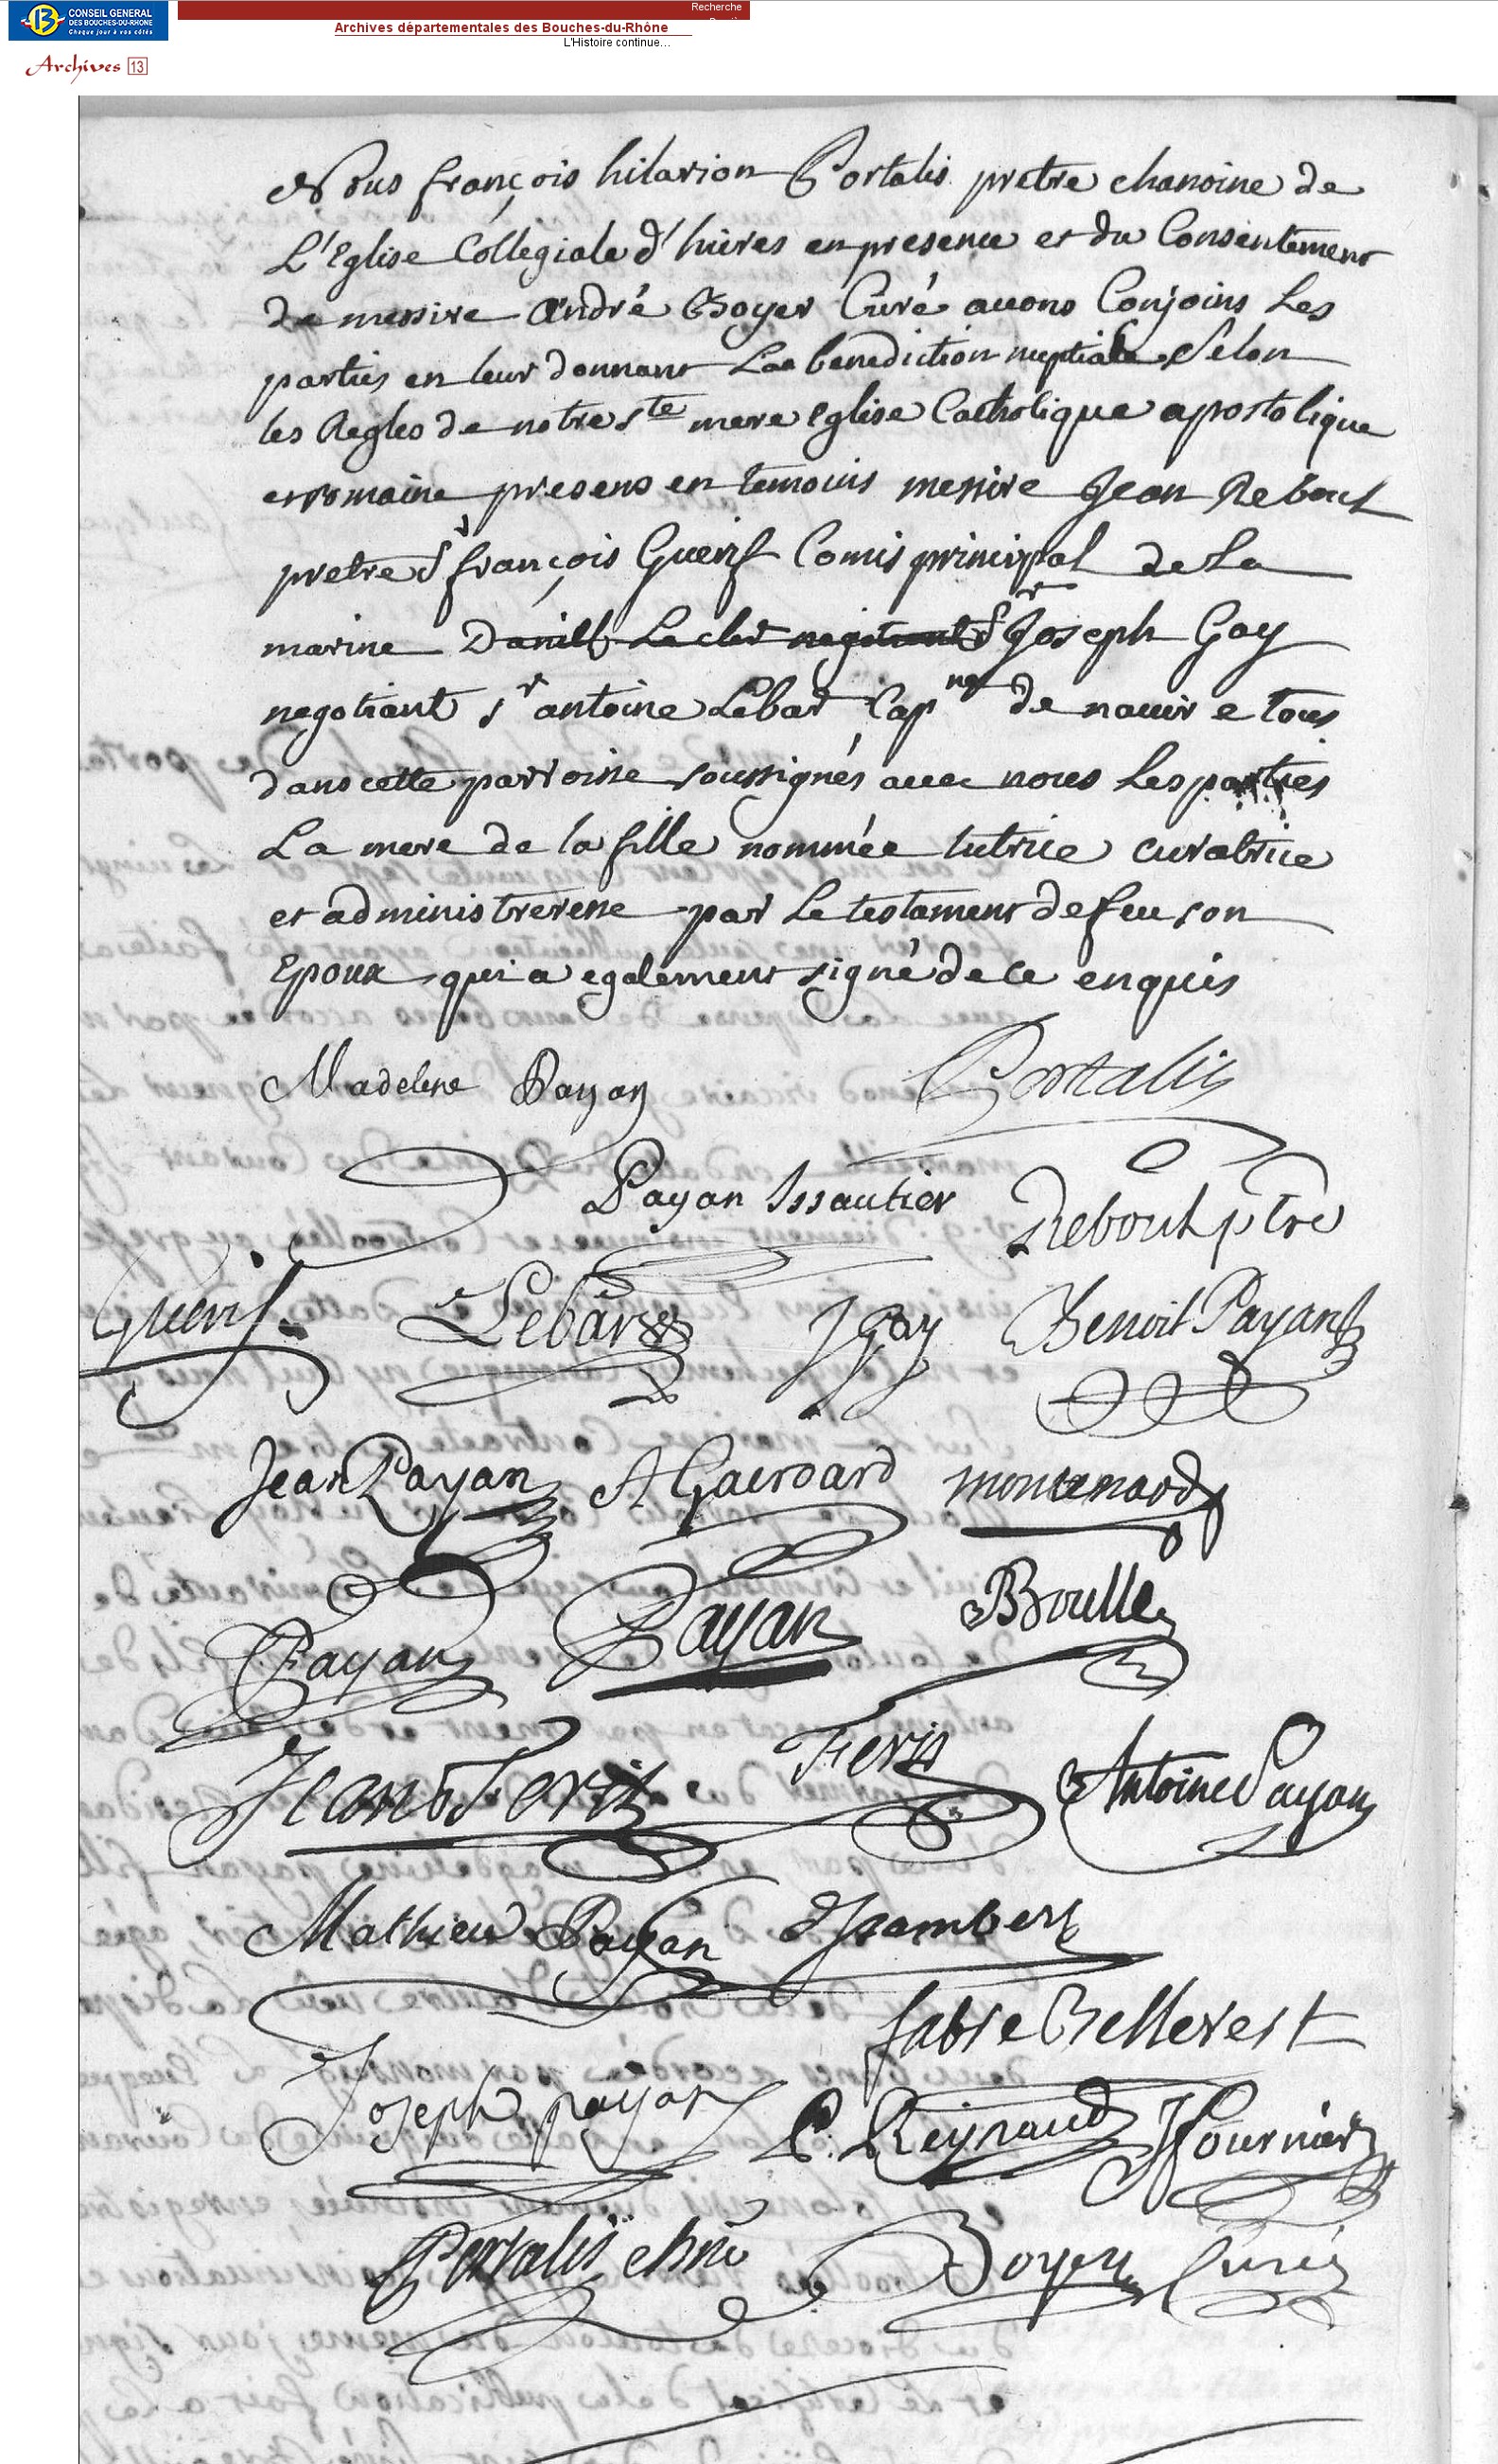 CONSEIL GENERAL
DES BOUCHES-DU-RHÔNE
Chaque jour à vos côtés
Recherche
Archives départementales des Bouches-du-Rhône
L'Histoire continue...
Archives 13
Nous françois hilarion Portalis pretre chanoine de
L'Eglise Collegiale d'hieres en presence et du Consentement
de messire andré Boyer Curé avons Conjoins Les
parties en leur donnant La benediction nuptiale Selon
les Regles de notre ste mere Eglise Catholique apostolique
et romaine presens en temoins messire Jean Reboul
pretre Sr françois Guerif Comis principal de La
marine Daniel Lecler negotiant Sr Joseph Gay
negotiant sr antoine Lebar Capne de navire tous
dans cette parroisse soussignés avec nous Les parties
La mere de la fille nommée tutrice curatrice
et administreresse par Le testament de feu son
Epoux qui a egalement signé de ce enquis
Madelene Payan
Portalis
Payan Issautier
Reboul ptre
Guerif
Lebar
J Gay
Benoit Payan
Jean Payan
A Gairoard
montenard
Payan
Payan
B Boulle
Jean Feris
Feris
Antoine Payan
Mathieu Payan
Isambert
fabre Bellevest
Joseph payan
Reynaud
Fournier
Portalis chne
Boyer Curé